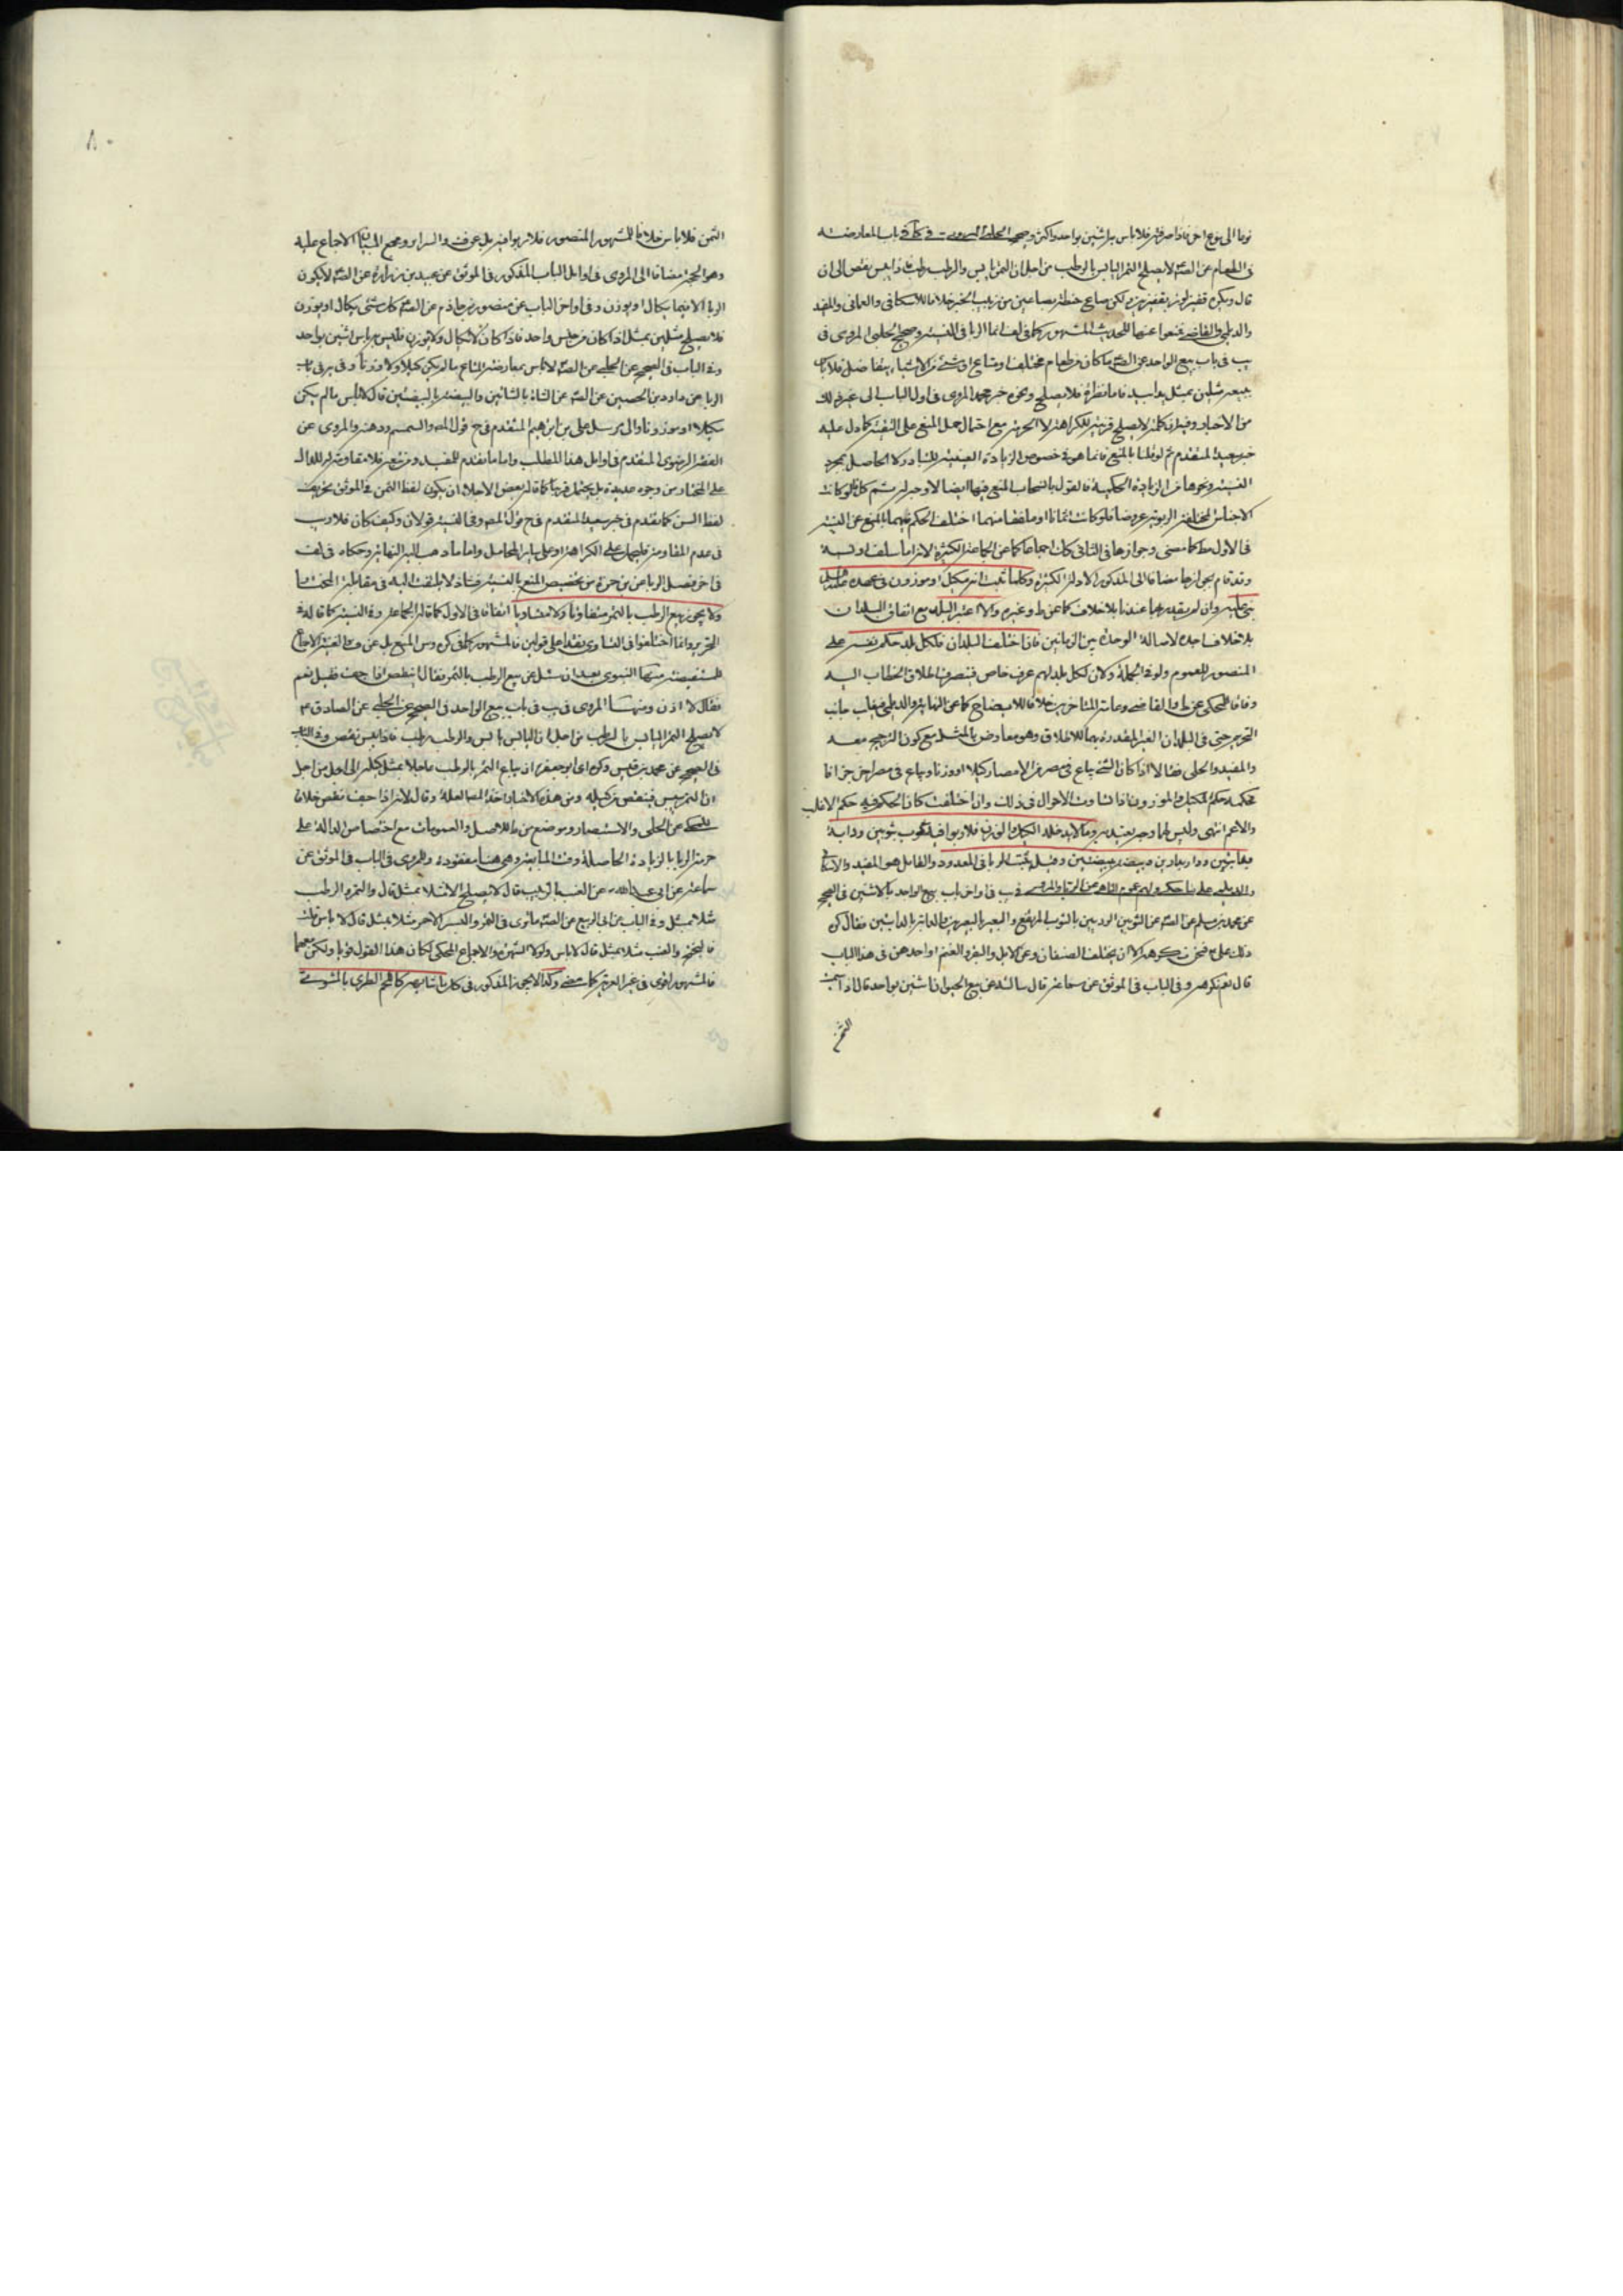 نوعا الى نوع اخر فاذا صرفته فلا باس به اثنين بواحد واكثر وصحيح الحلبي المروى فى كا فى باب المعاوضة
فى الطعام عن الصم لا يصلح التمر اليابس بالرطب من اجل ان التمر يابس والرطب رطب فاذا يبس نقص الى ان
قال ويكره قفيز لوز بقفيزين ولكن صاع حنطة بصاعين من زبيب الخبر خلافا للاسكافى والعمانى والمفيد
والديلمى والقاضى فمنعوا عنها للحديث المشهور كما فى لف انما الربا فى النسيئة وصحيح الحلبى المروى فى
يب فى باب بيع الواحد عن الصم ما كان من طعام مختلف او متاع او شئ من الاشياء يتفاضل فلا باس
ببيعه مثلين بمثل يدا بيد فاما نظرة فلا يصلح ونحوه خبر محمد المروى فى اول الباب الى غير ذلك
من الاخبار وفيه ان كلمة لا يصلح قرينة للكراهة لا الحرمة مع احتمال حمل المنع على التقية كما دل عليه
خبر سعيد المتقدم ثم لو قلنا بالمنع فانما هو فى خصوص الزيادة العينية للتبادر لا الحاصل بمجرد
النسيئة ونحوها من الزيادة الحكمية فالقول بانسحاب المنع فيها ايضا لا وجه له ثم كل ذلك لو كانت
الاجناس المختلفة الربوية عروضا فلو كانت اثمانا او ملفقا منهما اختلف الحكم فيهما بالمنع عن النسيئة
فى الاول مط كما مضى وجوازها فى الثانى كان اجماعا كما عن الجماعة الكثيرة لانه اما سلف او نسية
وقد قام بجوازها مضافا الى المذكور الادلة الكثيرة وكلما ثبت انه مكيل او موزون فى عهده صلى الله
بنى عليه وان لم يقدر بهما عندنا بلا خلاف كما عن ط وغيره والا اعتبر البلد مع اتفاق البلدان
بلا خلاف اجده لاصالة الوحدة بين الزمانين فان اختلف البلدان فلكل بلد حكم نفسه على
المنصور للعموم ولو فى الجملة ولان لكل بلد لهم عرف خاص فينصرف اطلاق الخطاب اليه
وفاقا للمحكى عن ط والقاضى وعامة المتاخرين خلافا للايضاح كما عن النهاية والديلمى فيغلب جانب
التحريم حتى فى البلدان الغير المقدرة بهما للاطلاق وهو معارض بالمثل مع كون الترجيح معه
والمفيد والحلى فقالا اذا كان الشئ يباع فى مصر من الامصار كيلا او وزنا ويباع فى مصر اخر جزافا
فحكمه حكم المكيل والموزون فاذا تساوت الاحوال فى ذلك وان اختلفت كان الحكم فيه حكم الاغلب
والاعم انتهى وليس لهما وجه يعتد به وما لا يدخله الكيل والوزن فلا ربوا فيه كثوب بثوبين ودابة
بدابتين ودار بدارين وبيضة ببيضتين وقيل يثبت الربا فى المعدود والقائل هو المفيد والاسكافى
والديلمى على ما حكى ولهم عموم الناهى عن الربا والمروى فى يب فى اواخر باب بيع الواحد بالاثنين فى الصحيح
عن محمد بن مسلم عن الصم عن الثوبين الرديين بالثوب المرتفع والبعير بالبعيرين والدابة بالدابتين فقال كره
ذلك على ع فنحن نكرهه الا ان يختلف الصنفان وعن الابل والبقر والغنم او احدهن فى هذا الباب
قال نعم نكرهه وفى الباب فى الموثق عن سماعة قال سالته عن بيع الحيوان اثنين بواحد قال اذا سميت
الثمن
٨٠
الثمن فلا باس خلافا للمشهور المنصور فلا ربوا فيه بل عن ف والسراير ومجمع البيان الاجماع عليه
وهو الحجة مضافا الى المروى فى اوايل الباب المذكور فى الموثق عن عبيد بن زرارة عن الصم لا يكون
الربا الا فيما يكال او يوزن وفى اواخر الباب عن منصور بن حازم عن الصم كل شئ يكال او يوزن
فلا يصلح مثلين بمثل اذا كان من جنس واحد فاذا كان لا يكال ولا يوزن فليس به باس اثنين بواحد
وفى الباب فى الصحيح عن الحلبى عن الصم لا باس بمعاوضة المتاع ما لم يكن كيلا ولا وزنا وفى يه فى باب
الربا عن داود بن الحصين عن الصم عن الشاة بالشاتين والبيضة بالبيضتين قال لا باس ما لم يكن
مكيلا او موزونا والى مرسل على بن ابرهيم المتقدم فى ح قول المص والسمسم ودهنه والمروى عن
الفقه الرضوى المتقدم فى اوايل هذا المطلب واما ما تقدم للمفيد ومن تبعه فلا مقاومة له للدال
على المختار من وجوه عديدة بل يحتمل قريبا كما قاله بعض الاجلاء ان يكون لفظ الثمن فى الموثق تحريف
لفظ السن كما تقدم فى خبر سعيد المتقدم فى ح قول المص وفى النسيئة قولان وكيف كان فلا ريب
فى عدم المقاومة فليحمل على الكراهة او على ساير المحامل واما ما ذهب اليه النهاية وحكاه فى لف
فى اخر فصل الربا عن بن حمزة من تخصيص المنع بالنسيئة فشاذ لا يلتفت اليه فى مقابلة المختار
ولا يجوز بيع الرطب بالتمر متفاوتا ولا متساويا اتفاقا فى الاول كما قاله الجماعة وفى النسيئة كما قاله فى
التحرير وانما اختلفوا فى التساوى نقدا على قولين فالمشهور كما فى كره وس المنع بل عن ف والغنية الاجماع
للمستفيضة منها النبوى بعد ان سئل عن بيع الرطب بالتمر فقال اينقص اذا جف فقيل نعم
فقال لا اذن ومنها المروى فى يب فى باب بيع الواحد فى الصحيح عن الحلبى عن الصادق ع
لا يصلح التمر اليابس بالرطب من اجل ان اليابس يابس والرطب رطب فاذا يبس نقص وفى الباب
فى الصحيح عن محمد بن قيس وكره اى ابو جعفر ان يباع التمر بالرطب عاجلا بمثل كيله الى اجل من اجل
ان التمر ييبس فينقص من كيله ومن هذه الاخبار اخذ المص العلة وقال لانه اذا جف نقص خلافا
للمحكى عن الحلى والاستبصار وموضع من ط للاصل والعمومات مع اختصاص الدالة على
حرمة الربا بالزيادة الحاصلة وقت المبايعة وهى هنا مفقودة وللمروى فى الباب فى الموثق عن
سماعة عن ابى عبد الله ع عن العنب بالزبيب قال لا يصلح الا مثلا بمثل قال والتمر والرطب
مثلا بمثل وفى الباب عن ابى الربيع عن الصم ما ترى فى التمر والبسر الاحمر مثلا بمثل قال لا باس قلت
فالبختج والعنب مثلا بمثل قال لا باس ولولا الشهرة والاجماع المحكى لكان هذا القول قويا ولكن معهما
فالمشهور اقوى فى غير العرية كما سيجئ وكذا لا يجوز المذكور فى كل ما شابهه كاللحم الطرى بالمشوى